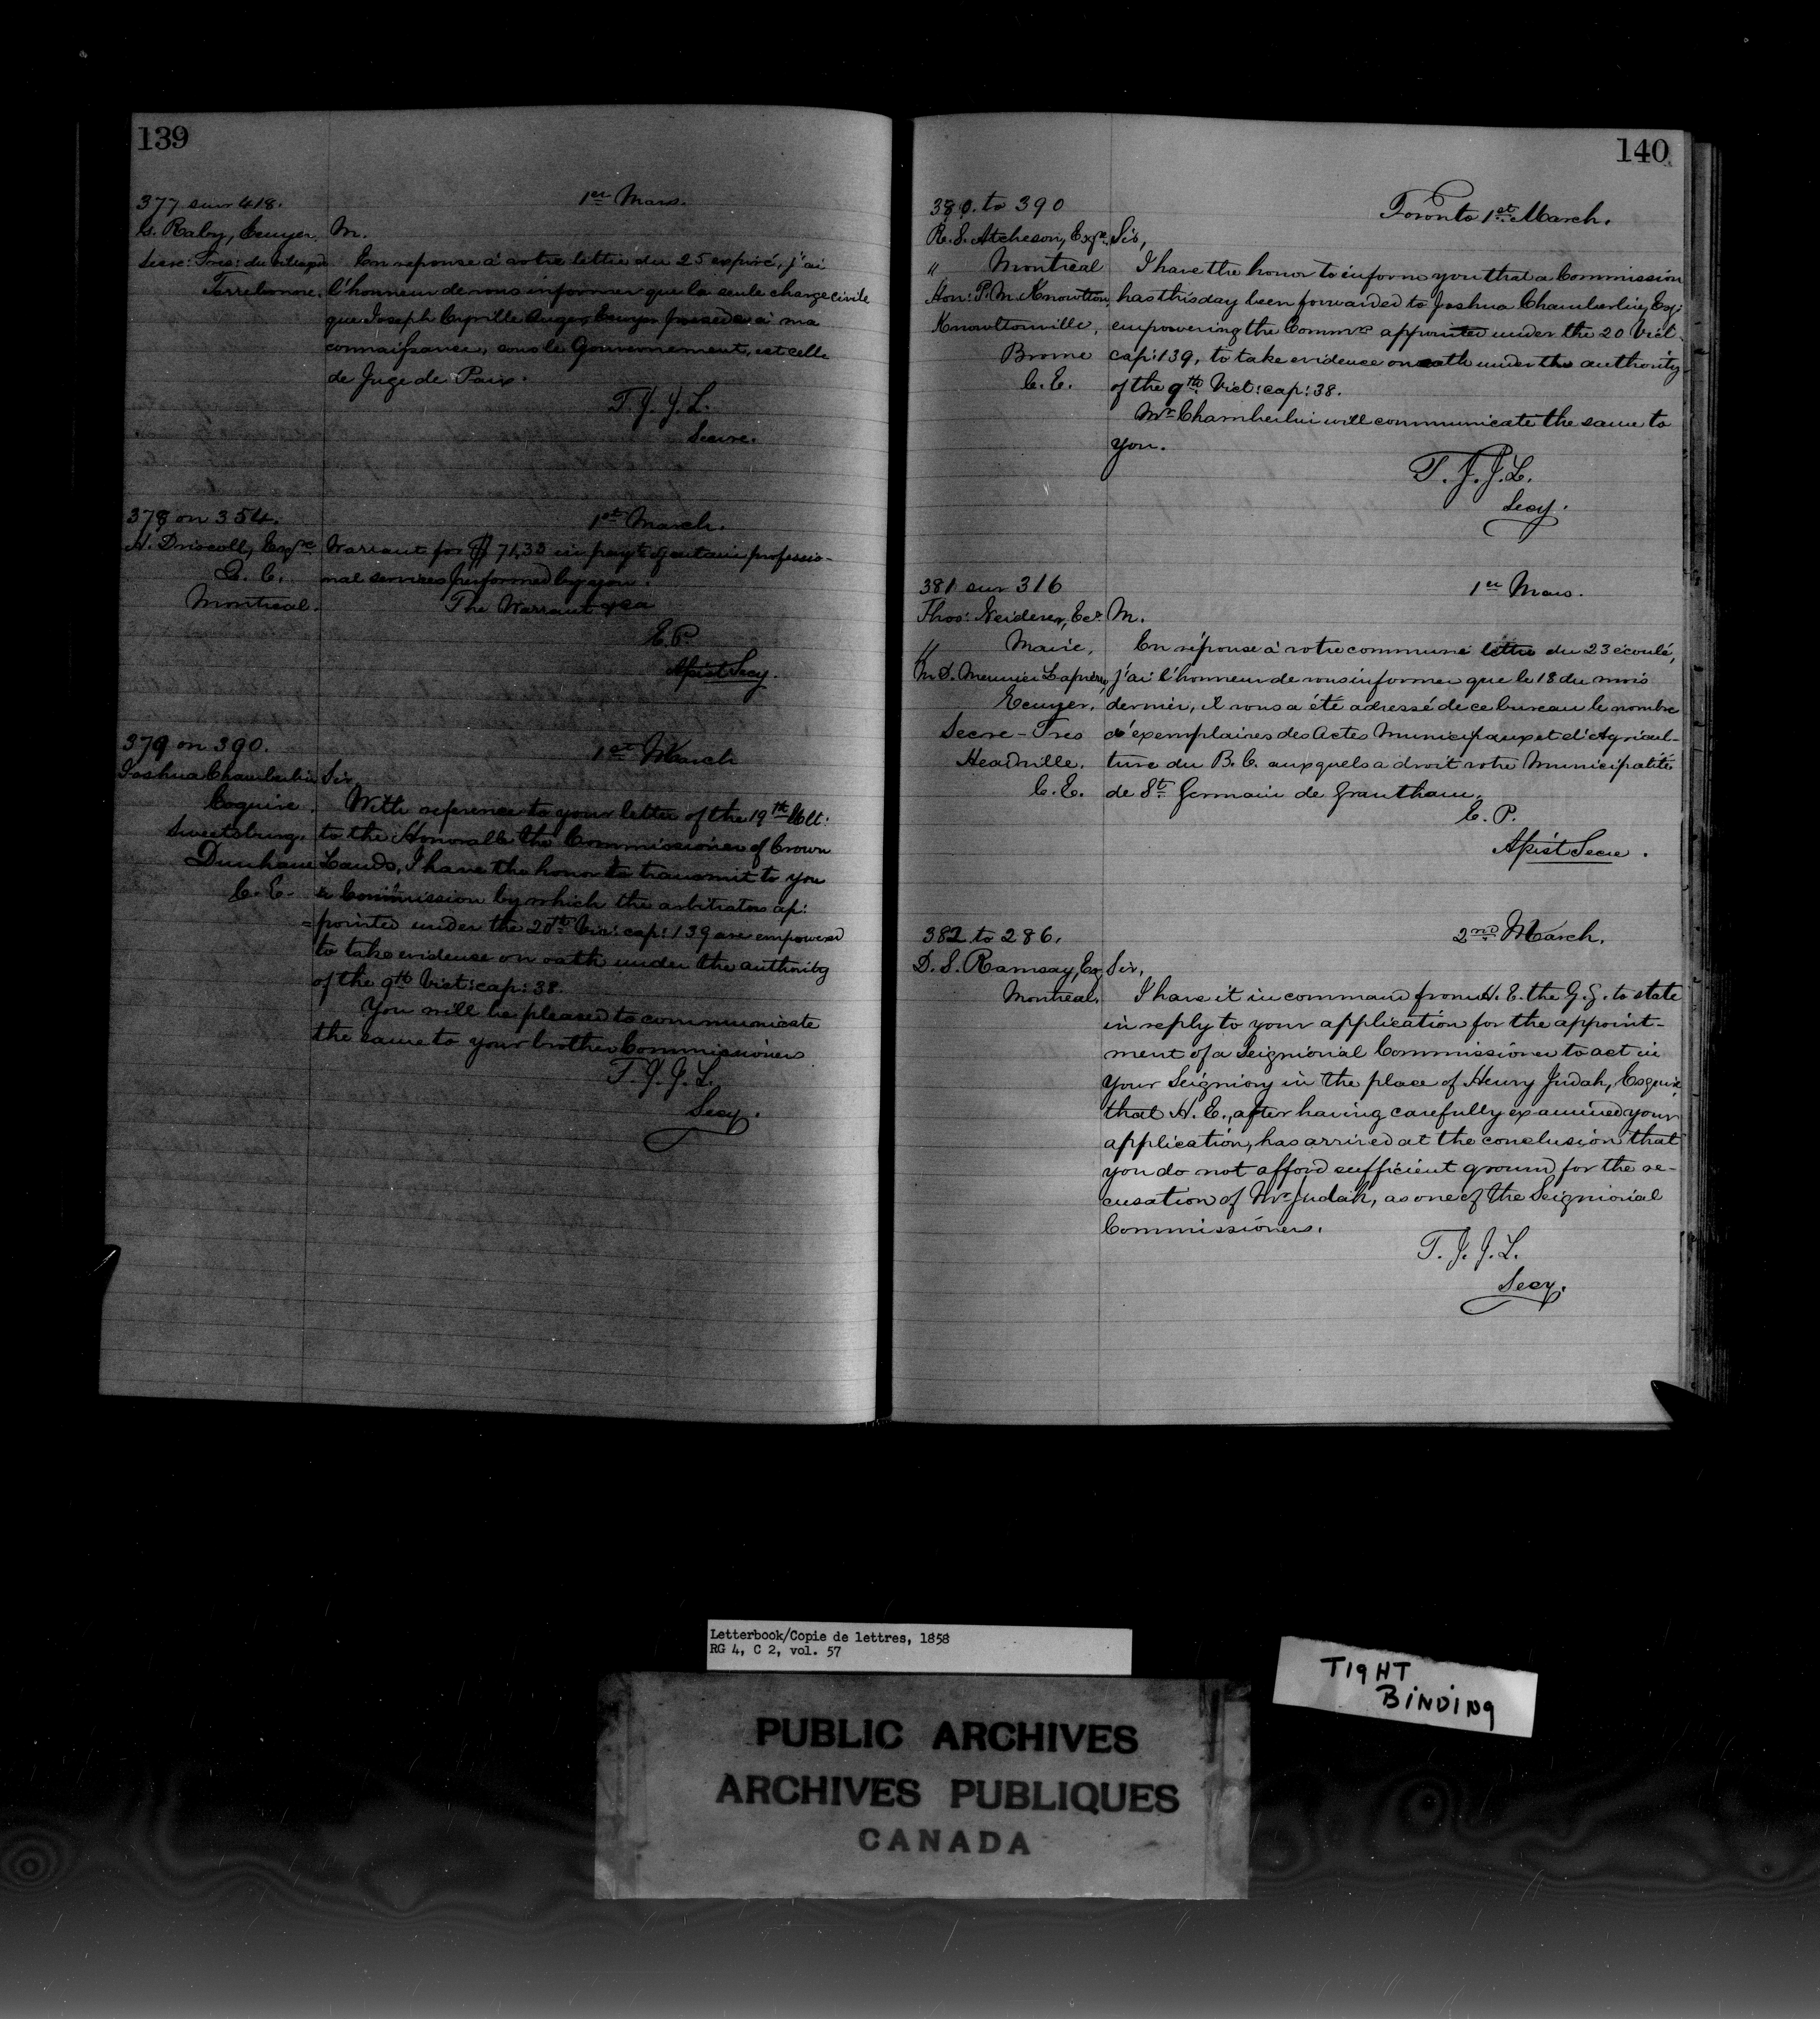 139
377 sur 418.
1er Mars.
G. Raby, Ecuyer,
Secre: Tres: du village de
Terrebonne.
M.
En reponse à votre lettre du 25 expiré, j'ai
l'honneur de vous informer que la seule charge civile
que Joseph Cyrille Auger Ecuyer possede à ma
connaissance, sous le Gouvernement, est celle
de Juge de Paix.
T. J. J. L.
Secre.
378 on 354.
1st March.
H. Driscoll, Esqre
Q. C.
Montreal.
Warrant for $ 71,35 in payt of certain professio-
nal services performed by you.
The Warrant
E. P.
Assist Secy.
379 on 390.
1st March
Joshua Chamberlin
Esquire.
Sweetsburg,
Dunham
C. E.
Sir,
With reference to your letter of the 19th Ult:
to the Honorable the Commissioner of Crown
Lands, I have the honor to transmit to you
a Commission by which the arbitrators ap:
=pointed under the 20th Vic: cap: 139 are empowered
to take evidence on oath under the authority
of the 9th Vict: cap: 38.
You will be pleased to communicate
the same to your brother Commissioners
T. J. J. L.
Secy.
140
380. to 390
Toronto 1st March.
R. S. Atcheson, Esqre
" Montreal
Hon: P. M. Knowlton
Knowltonville,
Brome
C. E.
Sir,
I have the honor to inform you that a Commission
has this day been forwarded to Joshua Chamberlin, Esq:
empowering the Commrs appointed under the 20 Vict.
cap: 139, to take evidence on oath under the authority
of the 9th Vict: cap: 38.
Mr Chamberlin will communicate the same to
you.
T. J. J. L.
Secy.
381 sur 316
1er Mars.
Thos: Ecr
" Maire,
M. D. Meunier Lapierre,
Ecuyer,
Secre-Tres
Headville.
C. E.
M.
En réponse à votre commune lettre du 23 écoulé,
j'ai l'honneur de vous informer que le 18 du mois
dernier, il vous a été adressé de ce bureau le nombre
d'exemplaires des Actes Municipaux et d'Agricul-
ture du B. C. auxquels a droit votre Municipalité
de St Germain de Grantham.
E. P.
Assist Secre.
382 to 286.
2nd March.
D. S. Ramsay, Esq
Montreal.
Sir,
I have it in command from H. E. the G. G. to state
in reply to your application for the appoint-
ment of a Seigniorial Commissioner to act in
your Seigniory in the place of Henry Judah, Esquire,
that H. E., after having carefully examined your
application, has arrived at the conclusion that
you do not afford sufficient ground for the re-
cusation of Mr Judah, as one of the Seigniorial
Commissioners.
T. J. J. L.
Secy.
Letterbook/Copie de lettres, 1858
RG 4, C 2, vol. 57
TIGHT
BINDING
PUBLIC ARCHIVES
ARCHIVES PUBLIQUES
CANADA